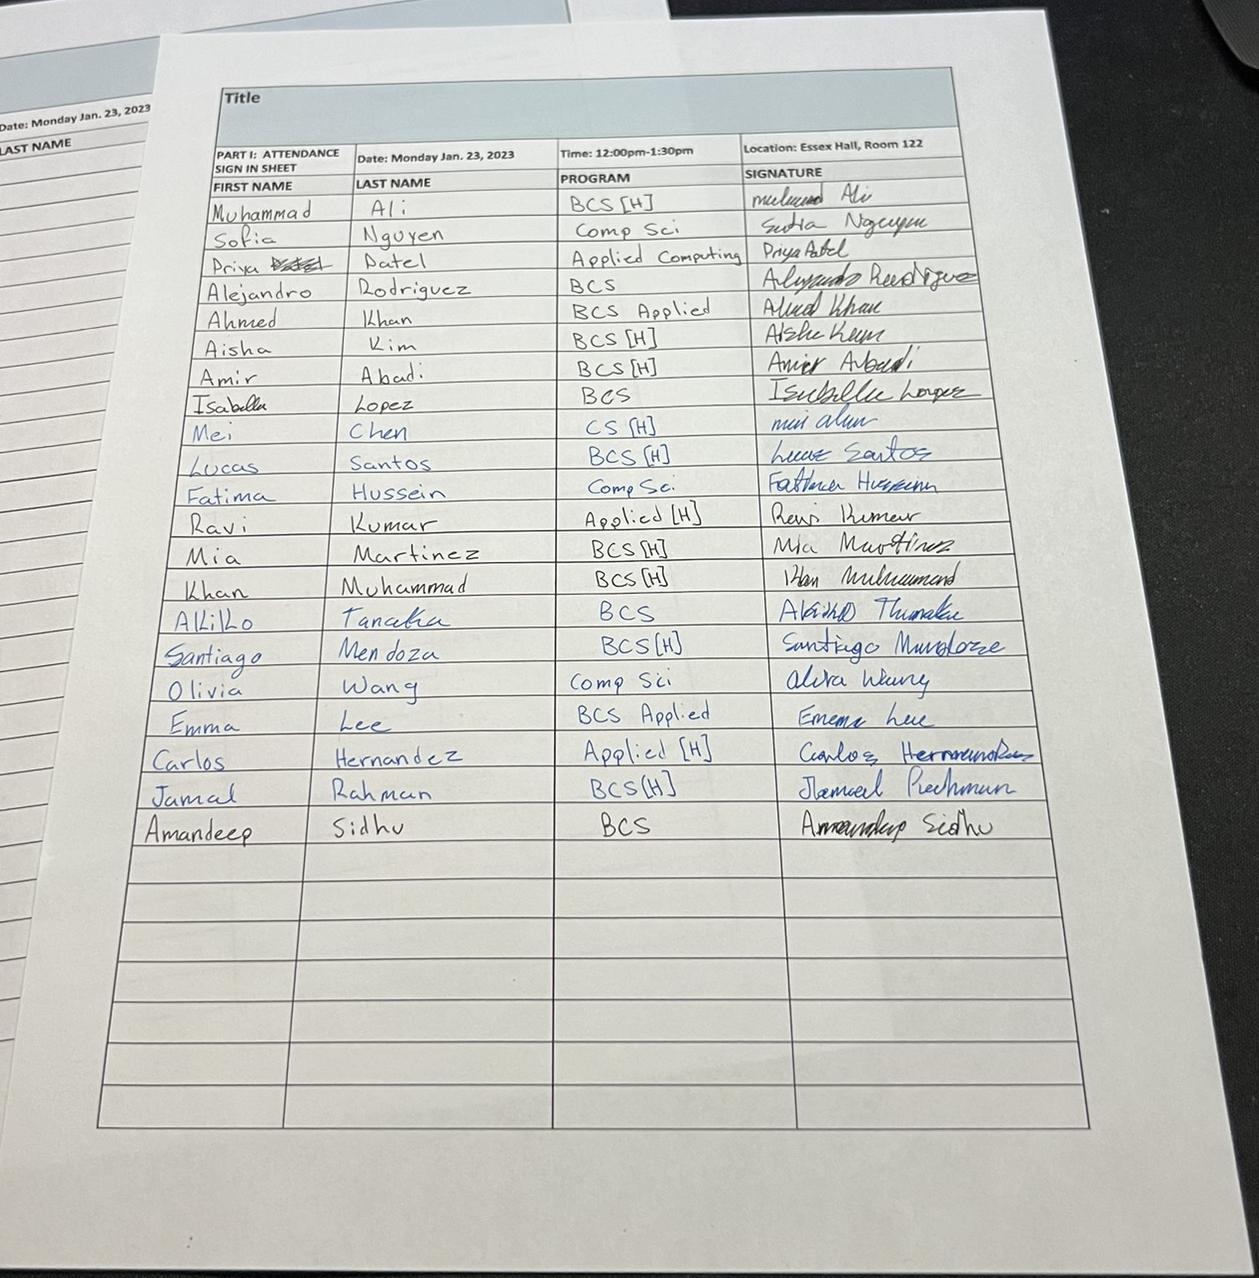 Date: Monday Jan. 23, 2023
LAST NAME
Title
PART I: ATTENDANCE SIGN IN SHEET Date: Monday Jan. 23, 2023 Time: 12:00pm-1:30pm Location: Essex Hall, Room 122
FIRST NAME LAST NAME PROGRAM SIGNATURE
Muhammad Ali BCS [H] Ali
Sofia Nguyen Comp Sci Nguyen
Priya Patel Applied Computing Priya Patel
Alejandro Rodriguez BCS
Ahmed Khan BCS Applied Khan
Aisha Kim BCS [H]
Amir Abadi BCS [H] Amir Abadi
Isabella Lopez BCS Isabella Lopez
Mei Chen CS [H] mei
Lucas Santos BCS [H] Lucas Santos
Fatima Hussein Comp Sci Fatima Hussein
Ravi Kumar Applied [H] Ravi Kumar
Mia Martinez BCS [H] Mia Martinez
Khan Muhammad BCS [H] Khan
Akiko Tanaka BCS Akiko
Santiago Mendoza BCS [H] Santiago
Olivia Wang Comp Sci Wang
Emma Lee BCS Applied Emma Lee
Carlos Hernandez Applied [H] Carlos Hernandez
Jamal Rahman BCS [H] Jamal
Amandeep Sidhu BCS Amandeep Sidhu